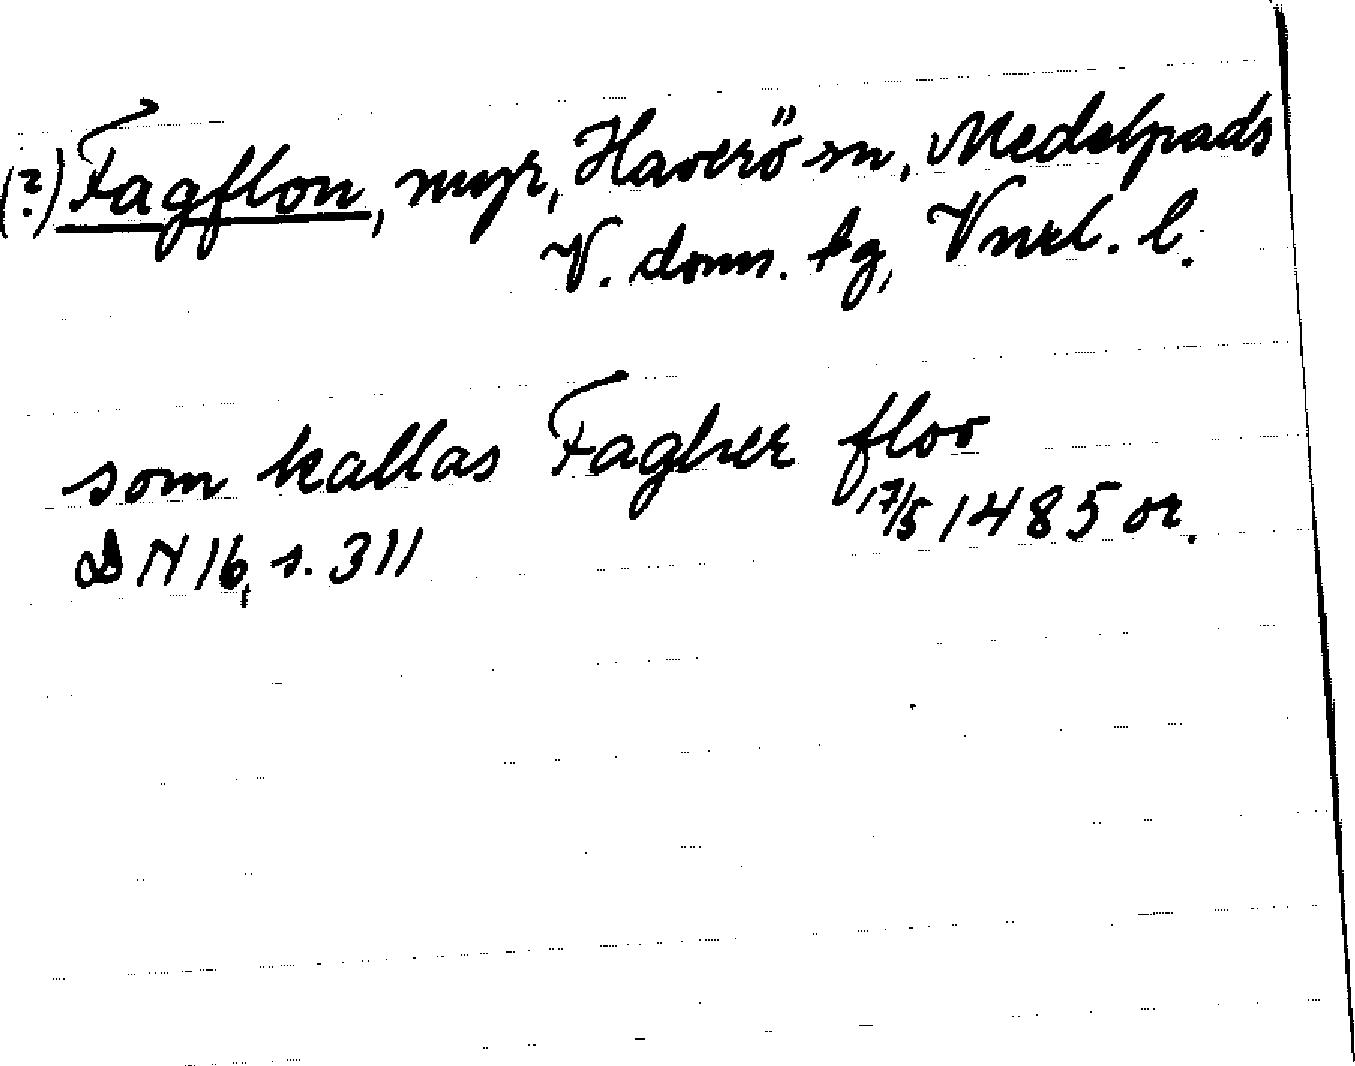 (?) Fagflon, myr, Haverö sn, Medelpads
V. doms. tg, Vnrl. l.
som kallas Fagher floo
17/5 1485 or.
DN 16, s. 311